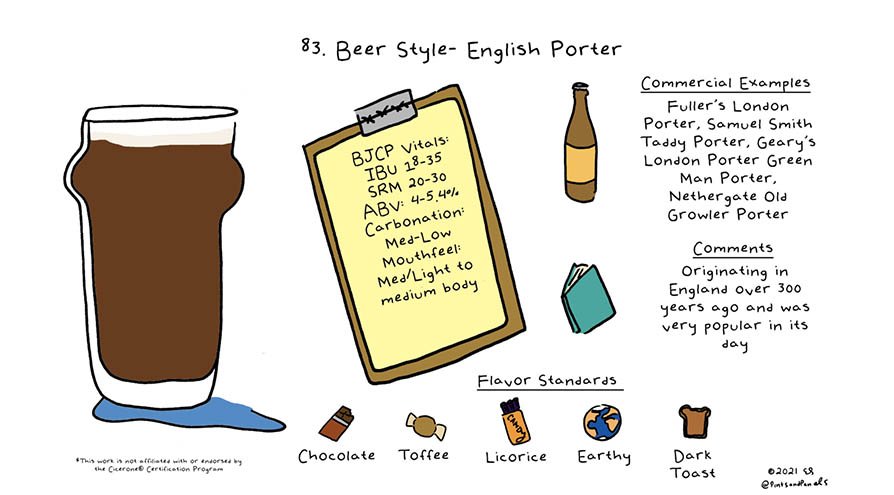 83. Beer Style- English Porter
BJCP Vitals:
IBU 18-35
SRM 20-30
ABV: 4-5.4%
Carbonation:
Med-Low
Mouthfeel:
Med/Light to
medium body
Commercial Examples
Fuller's London
Porter, Samuel Smith
Taddy Porter, Geary's
London Porter Green
Man Porter,
Nethergate Old
Growler Porter
Comments
Originating in
England over 300
years ago and was
very popular in its
day
Flavor Standards
CANDY
Chocolate
Toffee
Licorice
Earthy
Dark
Toast
*This work is not affiliated with or endorsed by
the Cicerone® Certification Program
©2021
@PintsandPanels